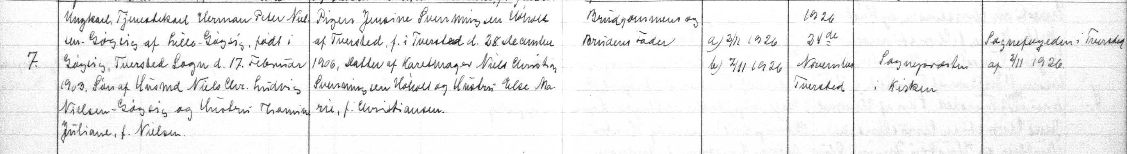 7.
Ungkarl, Tjenestekarl Herman Peter Niel-
sen-Gøgsig af Lille-Gøgsig, født i
Gøgsig, Tversted Sogn d. 17. Februar
1903, Søn af Husmd Niels Chr. Ludvig
Nielsen-Gøgsig og Hustru
Juliane, f. Nielsen.
Pigen Jensine Svenningsen Uohold
af Tversted, f. i Tversted d. 28 December
1906, Datter af Karetmager Niels Christian
Svenningsen Uohold og Hustru Else Ma-
rie, f. Christiansen.
Brudgommens og
Brudens Fader
a) 2/11 1926
b) 2/11 1926
1926
24de
November
Tversted
Sognepræsten
i Kirken
Sognefogeden i Tversted
af 2/11 1926